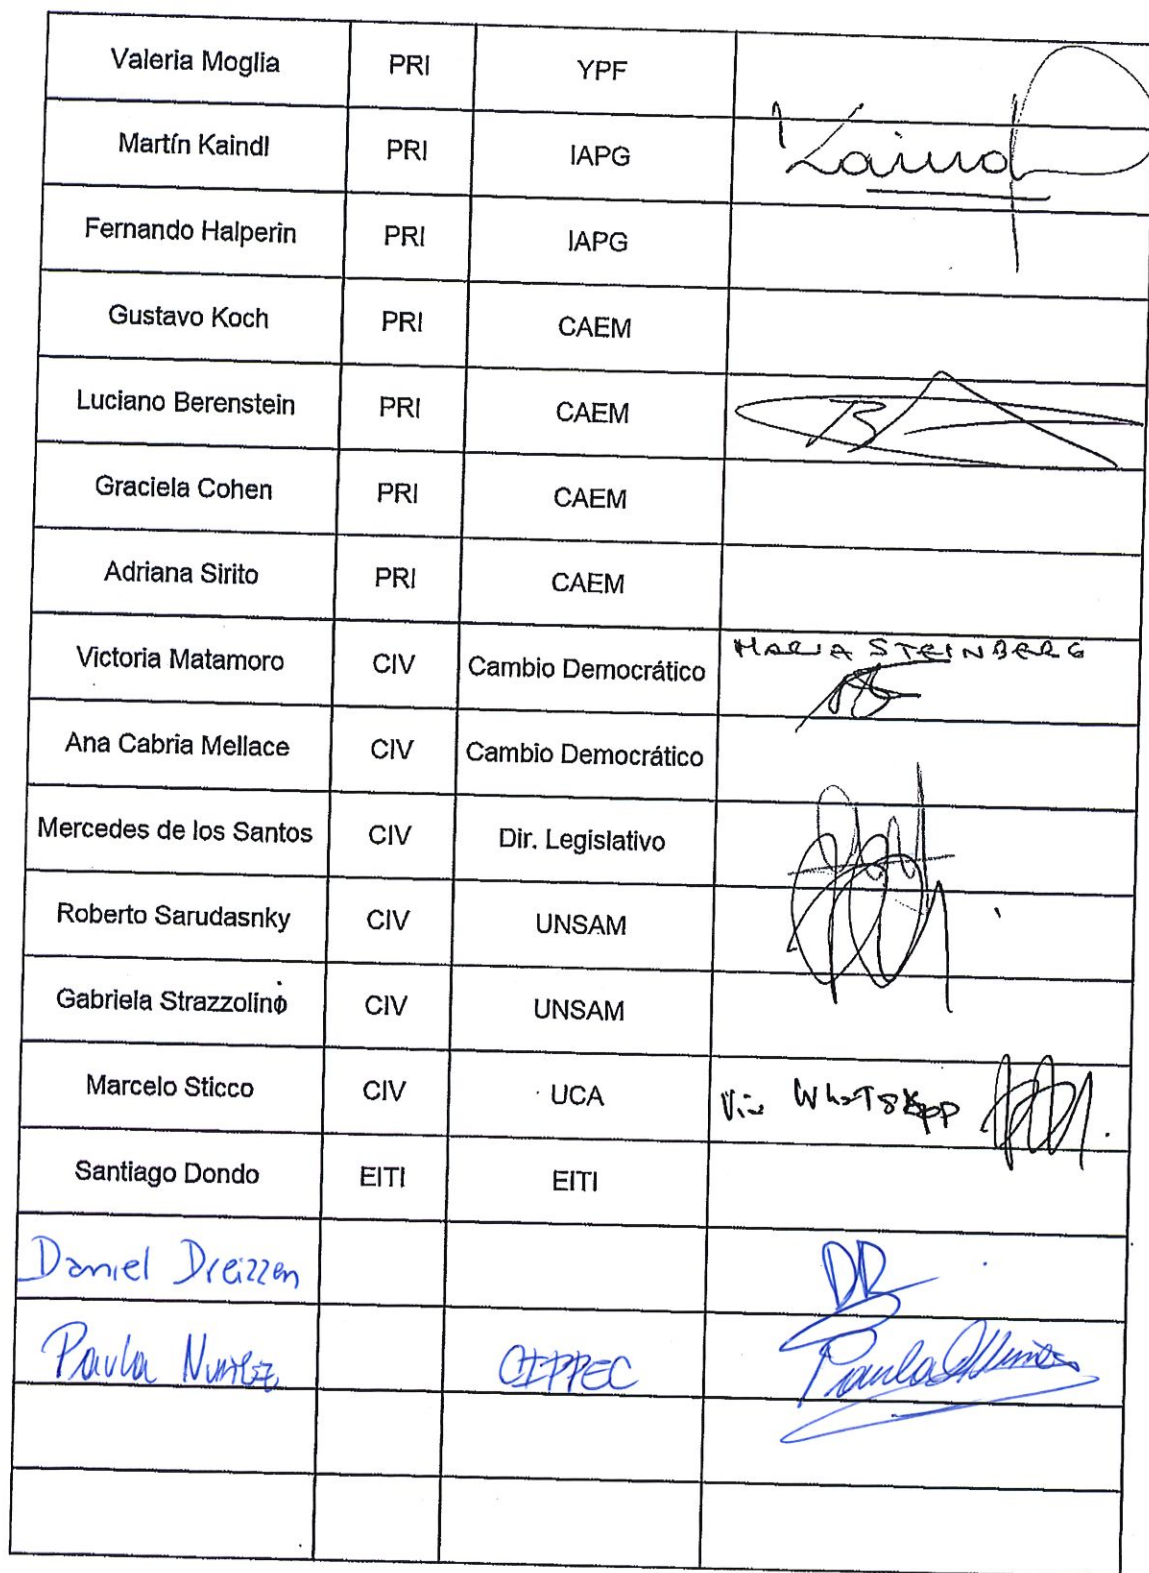 Valeria Moglia PRI YPF
Martín Kaindl PRI IAPG Kaindl
Fernando Halperin PRI IAPG
Gustavo Koch PRI CAEM
Luciano Berenstein PRI CAEM
Graciela Cohen PRI CAEM
Adriana Sirito PRI CAEM
Victoria Matamoro CIV Cambio Democrático MARIA STEINBERG
Ana Cabria Mellace CIV Cambio Democrático
Mercedes de los Santos CIV Dir. Legislativo
Roberto Sarudasnky CIV UNSAM
Gabriela Strazzolino CIV UNSAM
Marcelo Sticco CIV UCA Via WhatsApp
Santiago Dondo EITI EITI
Daniel Dreizzen DD
Paula Nuñez CIPPEC Paula Nuñez